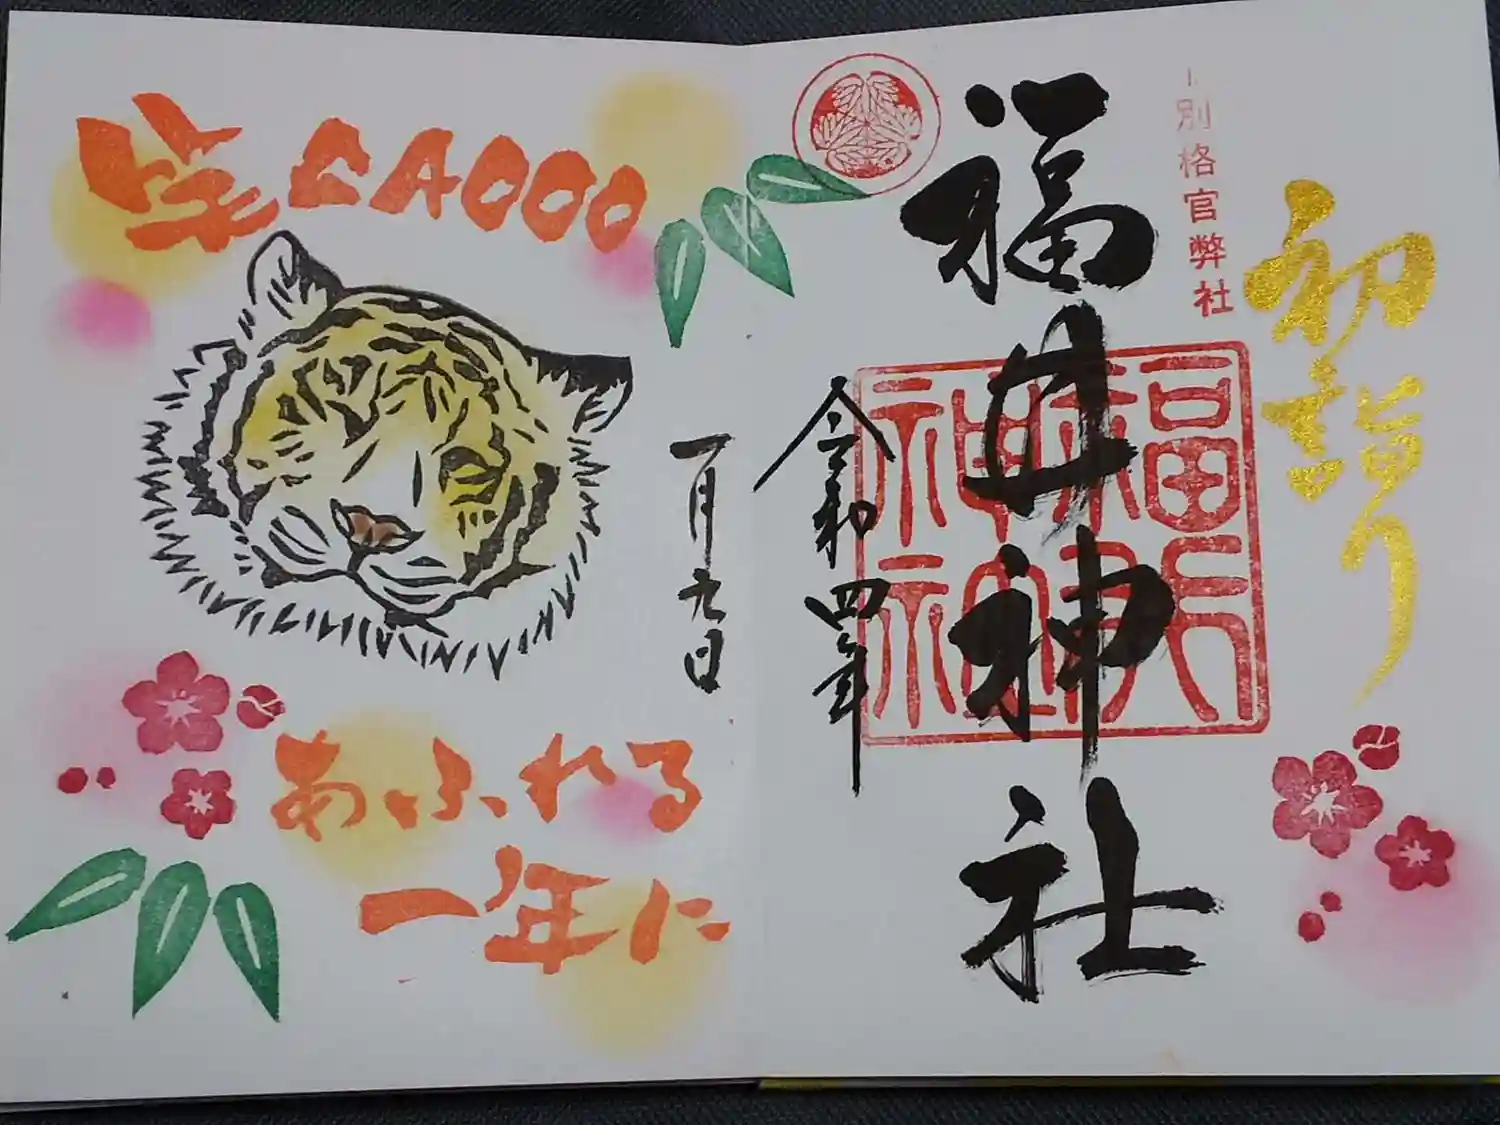 初詣り
別格官弊社
福井神社
福井
神社
令和四年
一月九日
あふれる
一年に